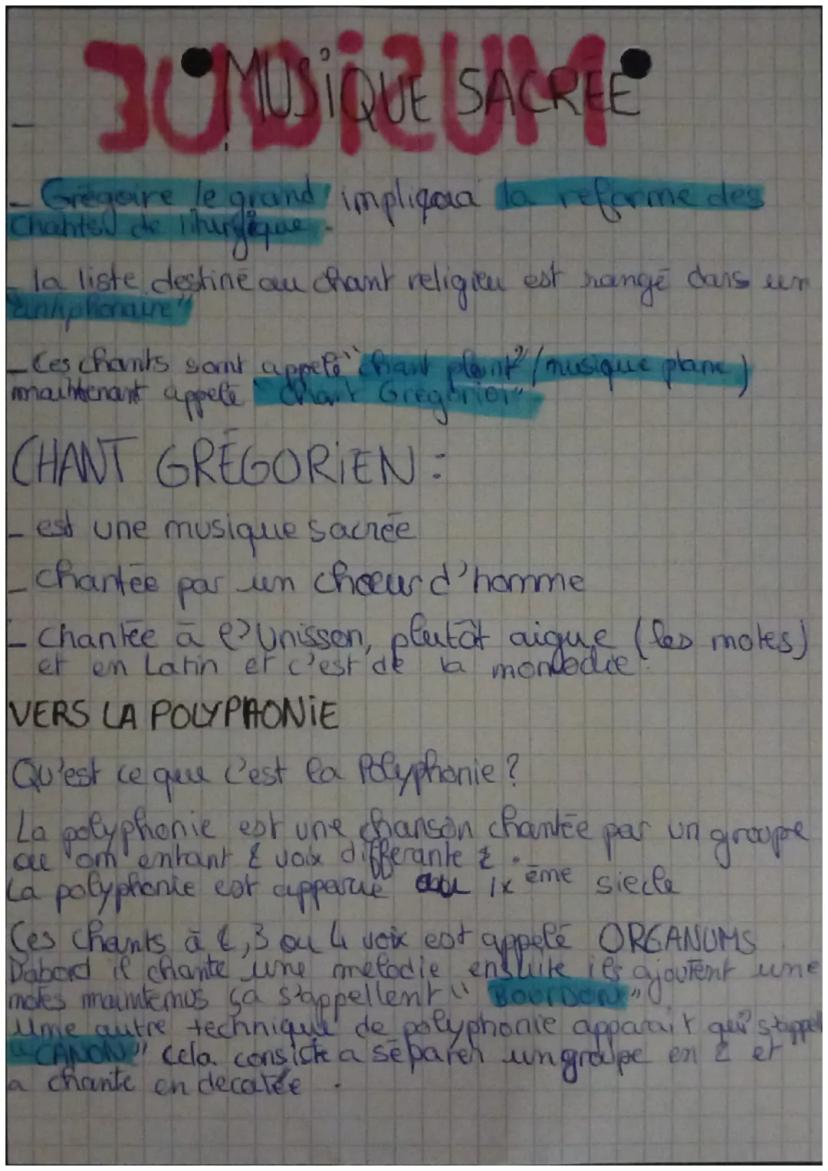 MUSIQUE SACRÉE
- Grégoire le grand impliqua la reforme des
chantes de liturgique.
- la liste destiné au chant religieu est rangé dans un
"antiphonaire"
- Ces chants sont appelé "chant plain" (musique plane)
maintenant appelé "chant Grégorien"
CHANT GRÉGORIEN :
- est une musique sacrée
- chantée par un choeur d'homme
- chantée à l'Unisson, plutôt aigue (les notes)
et en Latin et c'est de la monodie.
VERS LA POLYPHONIE
Qu'est ce que c'est la Polyphonie ?
La polyphonie est une chanson chantée par un groupe
ou on entant 2 voix differante 2.
La polyphonie est apparue au IX ème siecle
Ces chants à 2, 3 ou 4 voix est appelé ORGANUMS
D'abord il chante une melodie ensuite ils ajoutent une
notes maintenus ça s'appellent "BOURDON"
Une autre technique de polyphonie apparait qui s'appel
"CANON" cela consiste a séparer un groupe en 2 et
a chante en decalée.